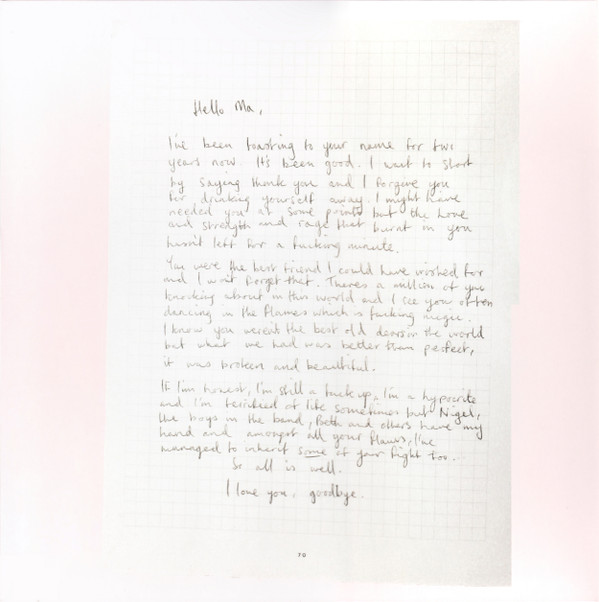 Hello Ma,
I've been toasting to your name for two
years now. It's been good. I want to start
by saying thank you and I forgive you
for drinking yourself away. I might have
needed you at some points but the love
and strength and rage that burnt on you
hasn't left for a fucking minute.
You were the best friend I could have wished for
and I won't forget that. Theres a million of you
knocking about in this world and I see you often
dancing in the flames which is fucking magic.
I know you weren't the best old dears in the world
but what we had was better than perfect,
it was broken and beautiful.
If I'm honest, I'm still a fuck up, I'm a hypocrite
and I'm terrified of life sometimes but Nigel,
the boys in the band, Beth and others have my
hand and amongst all your flaws, I've
managed to inherit some of your fight too.
So all is well.
I love you, goodbye.
70